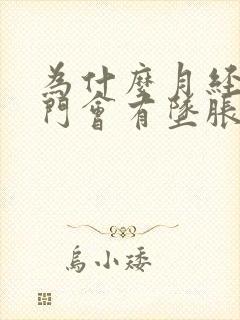 為什麼月經
門會有墜脹
烏小矮